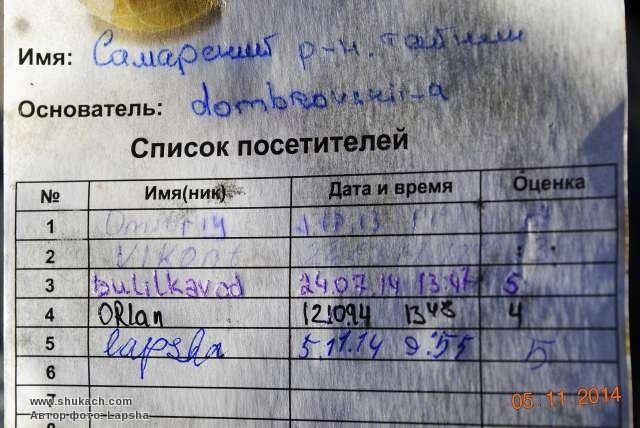 Имя: Самарский р-н. тайник
Основатель: dombrovskii-a
Список посетителей
№ Имя(ник) Дата и время Оценка
1 Dmitriy
2 VIKont
3 bulilkavod 24.07.14 13:47 5
4 ORlan 12.09.14 13:48 4
5 lapsha 5.11.14 9:55 5
6
7
8
www.shukach.com
Автор фото: Lapsha
05.11.2014